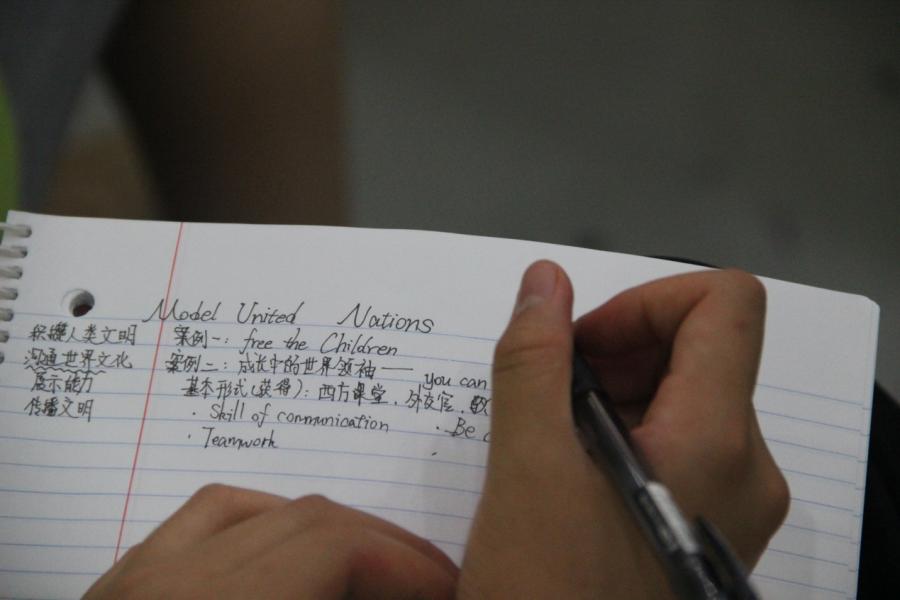 Model United Nations
积攒人类文明
沟通世界文化
展示能力
传播文明
案例一: free the Children
案例二: 成长中的世界领袖 — you can
基本形式(获得): 西方课堂, 外交官,
· Skill of communication · Be
· Teamwork